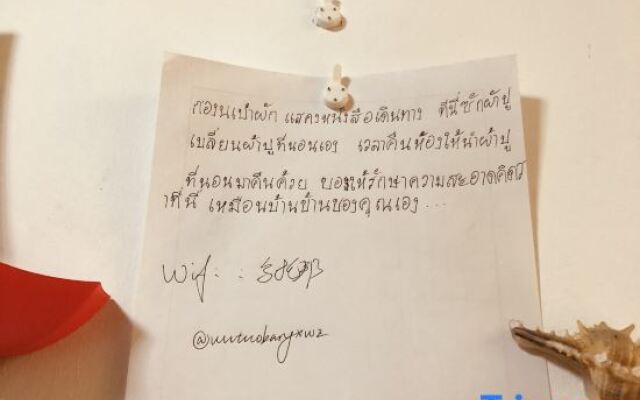 กองนเข้าพัก แสดงหนังสือเดินทาง ที่นี่ซักผ้าปู
เปลี่ยนผ้าปูที่นอนเอง เวลาคืนห้องให้นำผ้าปู
ที่นอนมาคืนด้วย ขอให้รักษาความสะอาดคิดว
าที่นี่ เหมือนบ้านบ้านของคุณเอง...
Wifi :